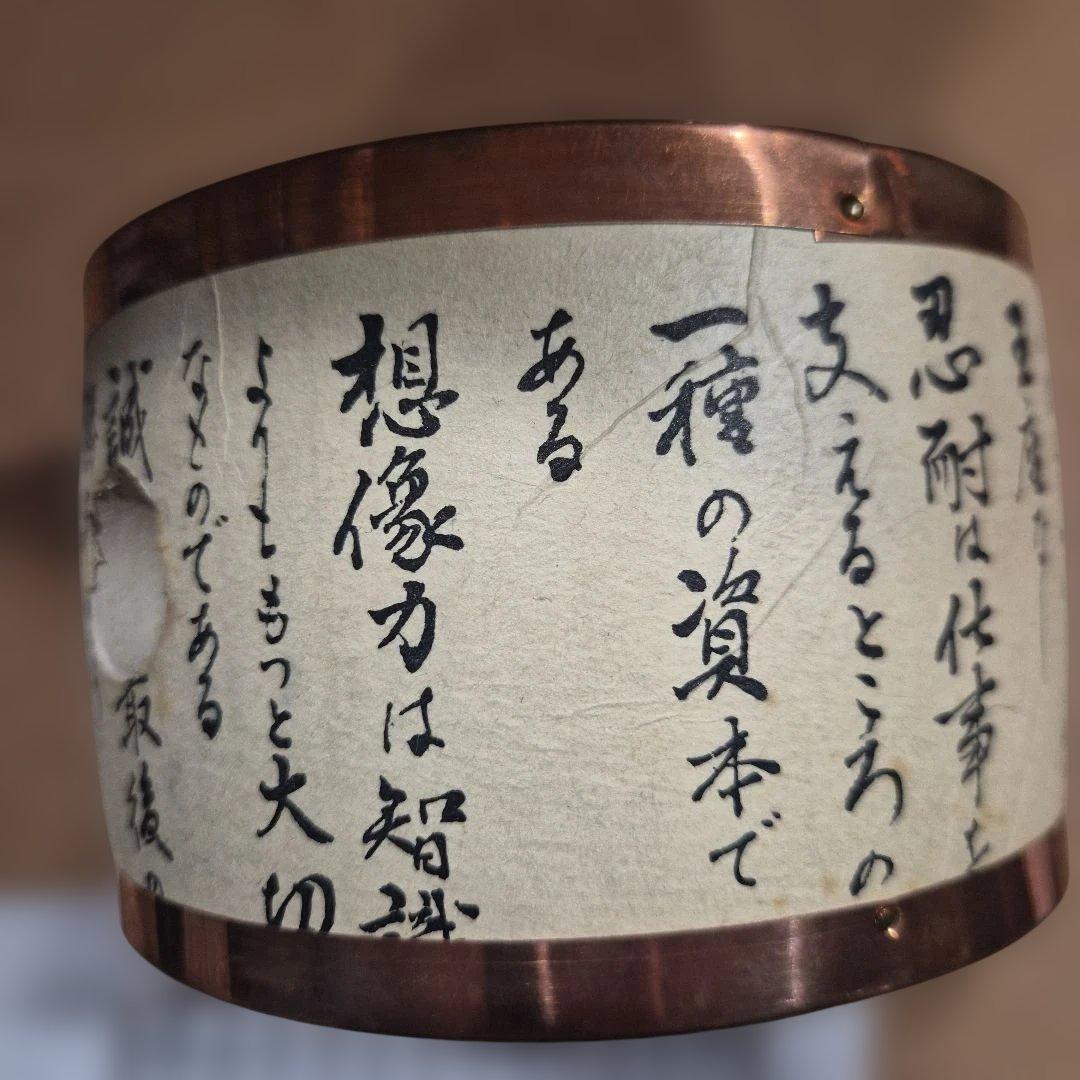 忍耐は仕事を
支えるところの
一種の資本で
ある
想像力は智識
よりももっと大切
なものである
誠
最後の